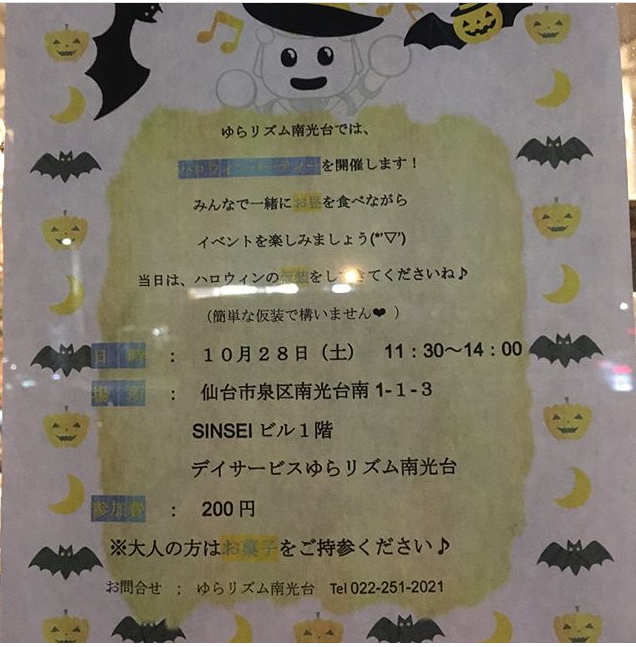 ゆらリズム南光台では、
ハロウィンパーティーを開催します！
みんなで一緒にお昼を食べながら
イベントを楽しみましょう(*'▽')
当日は、ハロウィンの仮装をしてきてくださいね♪
（簡単な仮装で構いません❤ ）
日 時 ： １０月２８日（土） 11：30～14：00
場 所 ： 仙台市泉区南光台南 1-１-３
SINSEI ビル１階
デイサービスゆらリズム南光台
参加費 ： 200 円
※大人の方はお菓子をご持参ください♪
お問合せ ： ゆらリズム南光台 Tel 022-251-2021